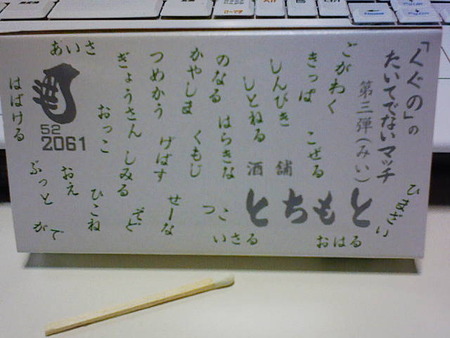 「くぐの」の
たいてでないマッチ
第三弾(みい)
ごがわく
こぜる
きっぱ
しんびき
しとねる
のなる
はらきな
かやしま
くもじ
つめかう
けばす
ぎょうさん
しみる
あいさ
おっこ
はばける
酒舗
とちもと
おはる
いさる
つこ
せーな
ひこね
おえ
ぶっと
がて
酒
52
2061